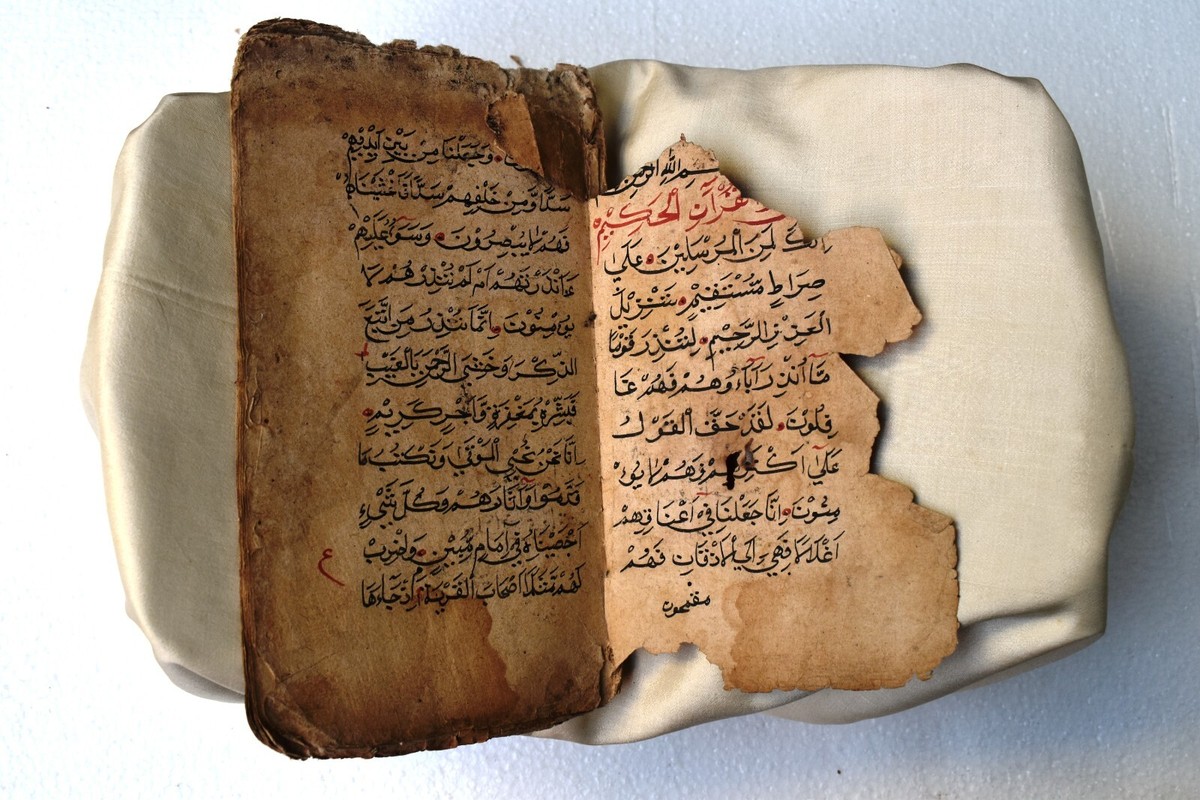 بِسْمِ اللّٰهِ الرَّحْمٰنِ
القُرْآنِ الْحَكِيْمِ
اِنَّكَ لَمِنَ الْمُرْسَلِيْنَ عَلَىٰ
صِرَاطٍ مُّسْتَقِيْمٍ تَنْزِيْلَ
الْعَزِيْزِ الرَّحِيْمِ لِتُنْذِرَ قَوْمًا
مَّا اُنْذِرَ آبَاؤُهُمْ فَهُمْ غَا
فِلُوْنَ لَقَدْ حَقَّ الْقَوْلُ
عَلٰى اَكْثَرِهِمْ فَهُمْ لَا يُؤْ
مِنُوْنَ اِنَّا جَعَلْنَا فِيْ اَعْنَاقِهِمْ
اَغْلَالًا فَهِيَ اِلَى الْاَذْقَانِ فَهُمْ
مقمحون
وَجَعَلْنَا مِنْ بَيْنِ اَيْدِيْهِمْ
سَدًّا وَّمِنْ خَلْفِهِمْ سَدًّا فَاَغْشَيْنَاهُمْ
فَهُمْ لَا يُبْصِرُوْنَ وَسَوَآءٌ عَلَيْهِمْ
ءَاَنْذَرْتَهُمْ اَمْ لَمْ تُنْذِرْهُمْ لَا
يُؤْمِنُوْنَ اِنَّمَا تُنْذِرُ مَنِ اتَّبَعَ
الذِّكْرَ وَخَشِيَ الرَّحْمٰنَ بِالْغَيْبِ
فَبَشِّرْهُ بِمَغْفِرَةٍ وَّاَجْرٍ كَرِيْمٍ
اِنَّا نَحْنُ نُحْيِ الْمَوْتٰى وَنَكْتُبُ مَا
قَدَّمُوْا وَآثَارَهُمْ وَكُلَّ شَيْءٍ
اَحْصَيْنَاهُ فِيْ اِمَامٍ مُّبِيْنٍ وَاضْرِبْ
لَهُمْ مَّثَلًا اَصْحَابَ الْقَرْيَةِ اِذْ جَآءَهَا
ع